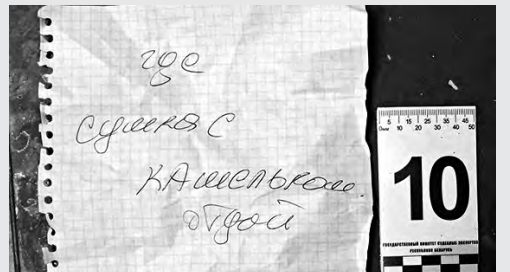 где
сумка с
кАшельком
отдой
5 15 25 35 45
0мм 10 20 30 40 50
10
ГОСУДАРСТВЕННЫЙ КОМИТЕТ СУДЕБНЫХ ЭКСПЕРТИЗ
РЕСПУБЛИКИ БЕЛАРУСЬ